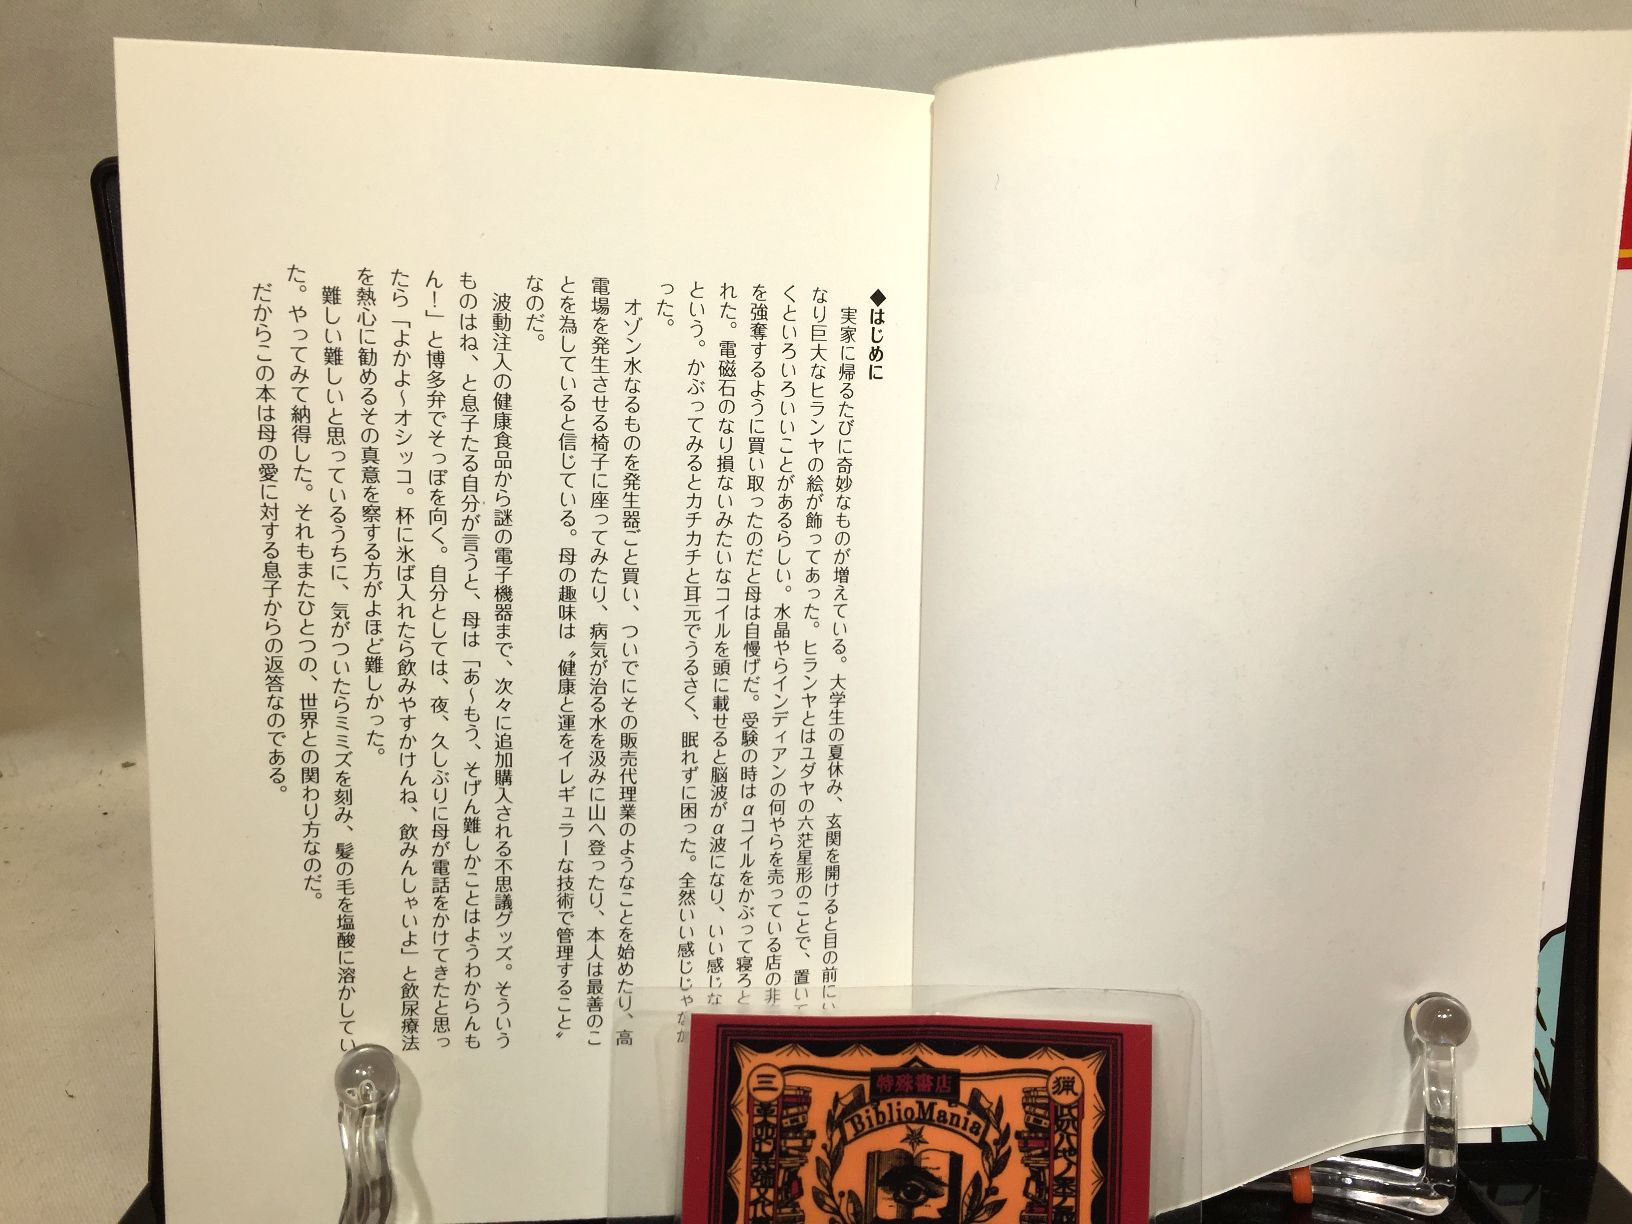 ◆はじめに
実家に帰るたびに奇妙なものが増えている。大学生の夏休み、玄関を開けると目の前に
なり巨大なヒランヤの絵が飾ってあった。ヒランヤとはユダヤの六茫星形のことで、置いて
くといろいろいいことがあるらしい。水晶やらインディアンの何やらを売っている店の非
を強奪するように買い取ったのだと母は自慢げだ。受験の時はαコイルをかぶって寝ろと
れた。電磁石のなり損ないみたいなコイルを頭に載せると脳波がα波になり、いい感じな
という。かぶってみるとカチカチと耳元でうるさく、眠れずに困った。全然いい感じじゃなか
った。
オゾン水なるものを発生器ごと買い、ついでにその販売代理業のようなことを始めたり、高
電場を発生させる椅子に座ってみたり、病気が治る水を汲みに山へ登ったり、本人は最善のこ
とを為していると信じている。母の趣味は〝健康と運をイレギュラーな技術で管理すること〟
なのだ。
波動注入の健康食品から謎の電子機器まで、次々に追加購入される不思議グッズ。そういう
ものはね、と息子たる自分が言うと、母は「あ〜もう、そげん難しかことはようわからんも
ん！」と博多弁でそっぽを向く。自分としては、夜、久しぶりに母が電話をかけてきたと思っ
たら「よかよ〜オシッコ。杯に氷ば入れたら飲みやすかけんね、飲みんしゃいよ」と飲尿療法
を熱心に勧めるその真意を察する方がよほど難しかった。
難しい難しいと思っているうちに、気がついたらミミズを刻み、髪の毛を塩酸に溶かしてい
た。やってみて納得した。それもまたひとつの、世界との関わり方なのだ。
だからこの本は母の愛に対する息子からの返答なのである。
特殊書店
BiblioMania
三
猟